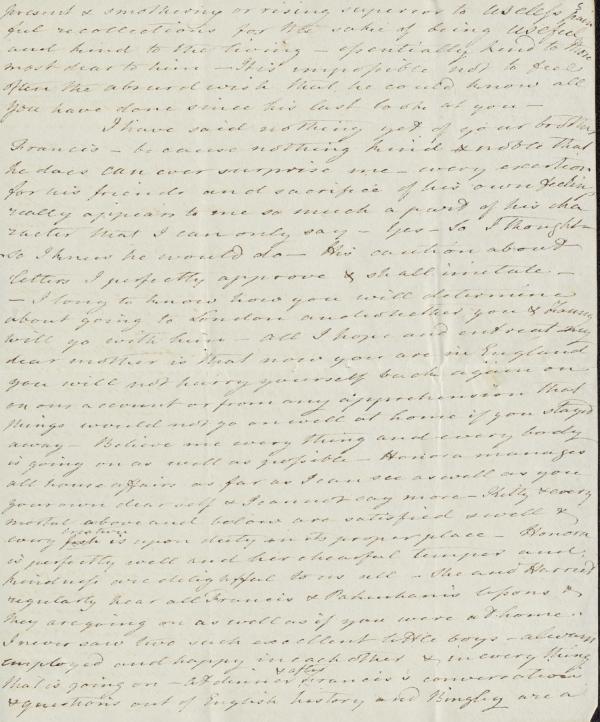 present & smothering or rising superior to useless & pain
ful recollections for the sake of being useful
and kind to the living – essentially kind to those
most dear to him – It is impossible not to feel
often the absurd wish that he could know all
you have done since his last look at you –
I have said nothing yet of your brother
Francis – because nothing kind & noble that
he does can ever surprise me – every exertion
for his friends and sacrifice of his own feelin
really appears to me so much a part of his cha
racter that I can only say – Yes – So I thought –
So I knew he would do – His caution about
letters I perfectly approve & shall imitate –
– I long to know how you will determine
about going to London and whether you &
will go with him – all I hope and entreat my
dear mother is that now you are in England
you will not hurry yourself back again on
on our account or from any apprehension that
things would not go on well at home if you stayed
away – Believe me every thing and every body
is going on as well as possible – Honora manages
all house affairs as far as I can see as well as you
your own dear self & I cannot say more – Kitty & every
mortal above and below are satisfied & well &
every creature is upon duty in its proper place – Honora
is perfectly well and her chearful temper and
kindness are delightful to us all – She and Harriet
regularly hear all Francis & Pakenham's lessons &
they are going on as well as if you were at home.
I never saw two such excellent little boys – always
employed and happy in each other & in every thing
that is going on – At dinner Francis's conversation
& questions out of English history and Bingley are a